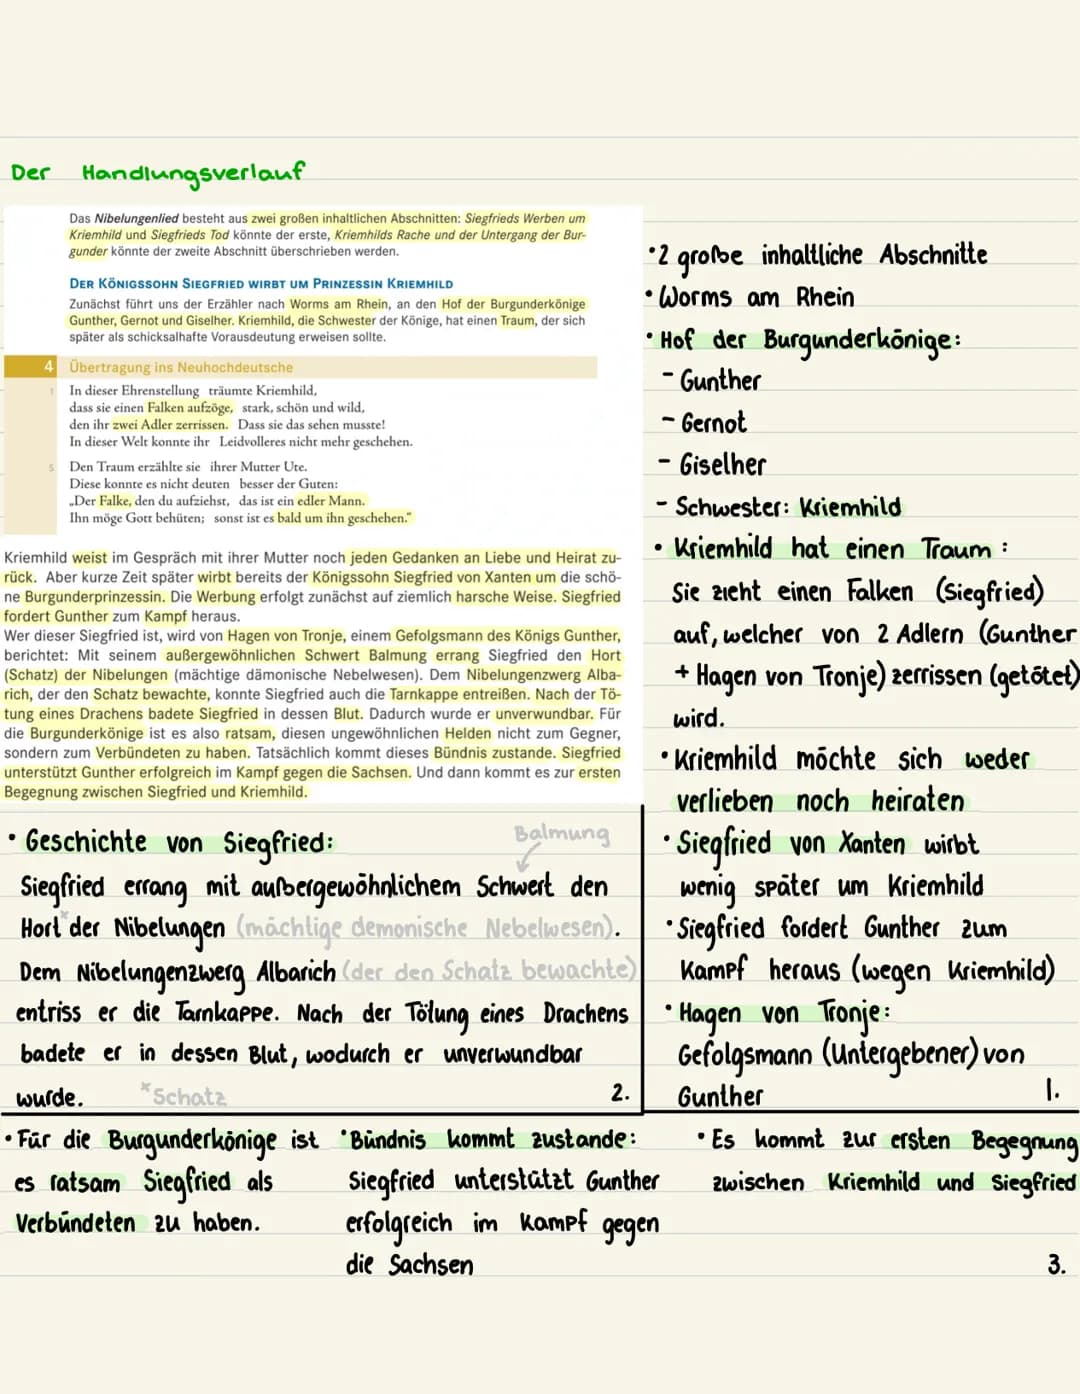 Der Handlungsverlauf
Das Nibelungenlied besteht aus zwei großen inhaltlichen Abschnitten: Siegfrieds Werben um
Kriemhild und Siegfrieds Tod könnte der erste, Kriemhilds Rache und der Untergang der Bur-
gunder könnte der zweite Abschnitt überschrieben werden.
DER KÖNIGSSOHN SIEGFRIED WIRBT UM PRINZESSIN KRIEMHILD
Zunächst führt uns der Erzähler nach Worms am Rhein, an den Hof der Burgunderkönige
Gunther, Gernot und Giselher. Kriemhild, die Schwester der Könige, hat einen Traum, der sich
später als schicksalhafte Vorausdeutung erweisen sollte.
4 Übertragung ins Neuhochdeutsche
1 In dieser Ehrenstellung träumte Kriemhild,
dass sie einen Falken aufzöge, stark, schön und wild,
den ihr zwei Adler zerrissen. Dass sie das sehen musste!
In dieser Welt konnte ihr Leidvolleres nicht mehr geschehen.
5 Den Traum erzählte sie ihrer Mutter Ute.
Diese konnte es nicht deuten besser der Guten:
„Der Falke, den du aufziehst, das ist ein edler Mann.
Ihn möge Gott behüten; sonst ist es bald um ihn geschehen."
Kriemhild weist im Gespräch mit ihrer Mutter noch jeden Gedanken an Liebe und Heirat zu-
rück. Aber kurze Zeit später wirbt bereits der Königssohn Siegfried von Xanten um die schö-
ne Burgunderprinzessin. Die Werbung erfolgt zunächst auf ziemlich harsche Weise. Siegfried
fordert Gunther zum Kampf heraus.
Wer dieser Siegfried ist, wird von Hagen von Tronje, einem Gefolgsmann des Königs Gunther,
berichtet: Mit seinem außergewöhnlichen Schwert Balmung errang Siegfried den Hort
(Schatz) der Nibelungen (mächtige dämonische Nebelwesen). Dem Nibelungenzwerg Alba-
rich, der den Schatz bewachte, konnte Siegfried auch die Tarnkappe entreißen. Nach der Tö-
tung eines Drachens badete Siegfried in dessen Blut. Dadurch wurde er unverwundbar. Für
die Burgunderkönige ist es also ratsam, diesen ungewöhnlichen Helden nicht zum Gegner,
sondern zum Verbündeten zu haben. Tatsächlich kommt dieses Bündnis zustande. Siegfried
unterstützt Gunther erfolgreich im Kampf gegen die Sachsen. Und dann kommt es zur ersten
Begegnung zwischen Siegfried und Kriemhild.
• 2 große inhaltliche Abschnitte
• Worms am Rhein
• Hof der Burgunderkönige:
- Gunther
- Gernot
- Giselher
- Schwester: Kriemhild
• Kriemhild hat einen Traum:
Sie zieht einen Falken (Siegfried)
auf, welcher von 2 Adlern (Gunther
+ Hagen von Tronje) zerrissen (getötet)
wird.
• Kriemhild möchte sich weder
verlieben noch heiraten
• Siegfried von Xanten wirbt
wenig später um Kriemhild
• Siegfried fordert Gunther zum
Kampf heraus (wegen Kriemhild)
• Hagen von Tronje:
Gefolgsmann (Untergebener) von
Gunther
1.
• Geschichte von Siegfried:
Balmung
Siegfried errang mit außergewöhnlichem Schwert den
Hort* der Nibelungen (mächtige demonische Nebelwesen).
Dem Nibelungenzwerg Albarich (der den Schatz bewachte)
entriss er die Tarnkappe. Nach der Tötung eines Drachens
badete er in dessen Blut, wodurch er unverwundbar
wurde.
*Schatz
2.
• Für die Burgunderkönige ist
es ratsam Siegfried als
Verbündeten zu haben.
• Bündnis kommt zustande:
Siegfried unterstützt Gunther
erfolgreich im Kampf gegen
die Sachsen
• Es kommt zur ersten Begegnung
zwischen Kriemhild und Siegfried
3.